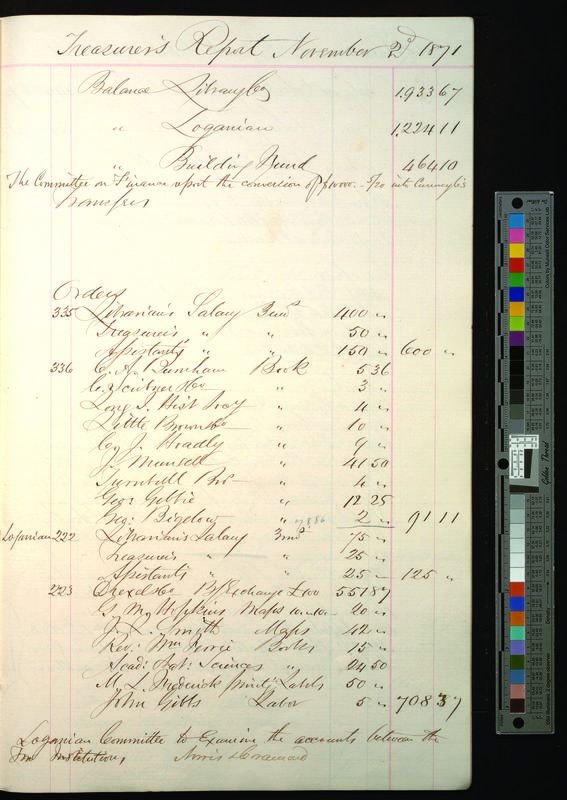 Treasurer's Report November 2d 1871
Balance Library Co 1,933 67
" Loganian 1,224 11
" Building Fund 464 10
The Committee on Finance report the conversion of $10000. 5/20 into
Transfer
Orders
335 Librarian's Salary 3 mos 400 "
Treasurer's " " 50 "
Assistants " " 150 " 600 "
336 C. A. Durnham Book 5 36
C. Scribner & Co " 3 "
Long I. Hist Socy " 4 "
Little Brown & Co " 10 "
J. Hoadly " 9 "
J. Munsell " 41 50
Turnbull Bro " 4 "
Geo Gebbie " 12 25
Geo: Bigelow " 2 " 91 11
Loganian 222 Librarian's Salary 3 mos 75 "
Treasurers " " 25 "
Assistants " " 25 " 125 "
223 Drexel & Co B/Exchange £100 551 87
G. M. Hopkins Maps 20 "
J. L. Smith Maps 42 "
Rev: Wm Books 15 "
Acad: Nat: Sciences " 24 50
M. L. Frederick print: Labels 50 "
John Gibbs Labor 5 " 708 37
Loganian Committee to Examine the accounts between the
Two Institutions Norris &